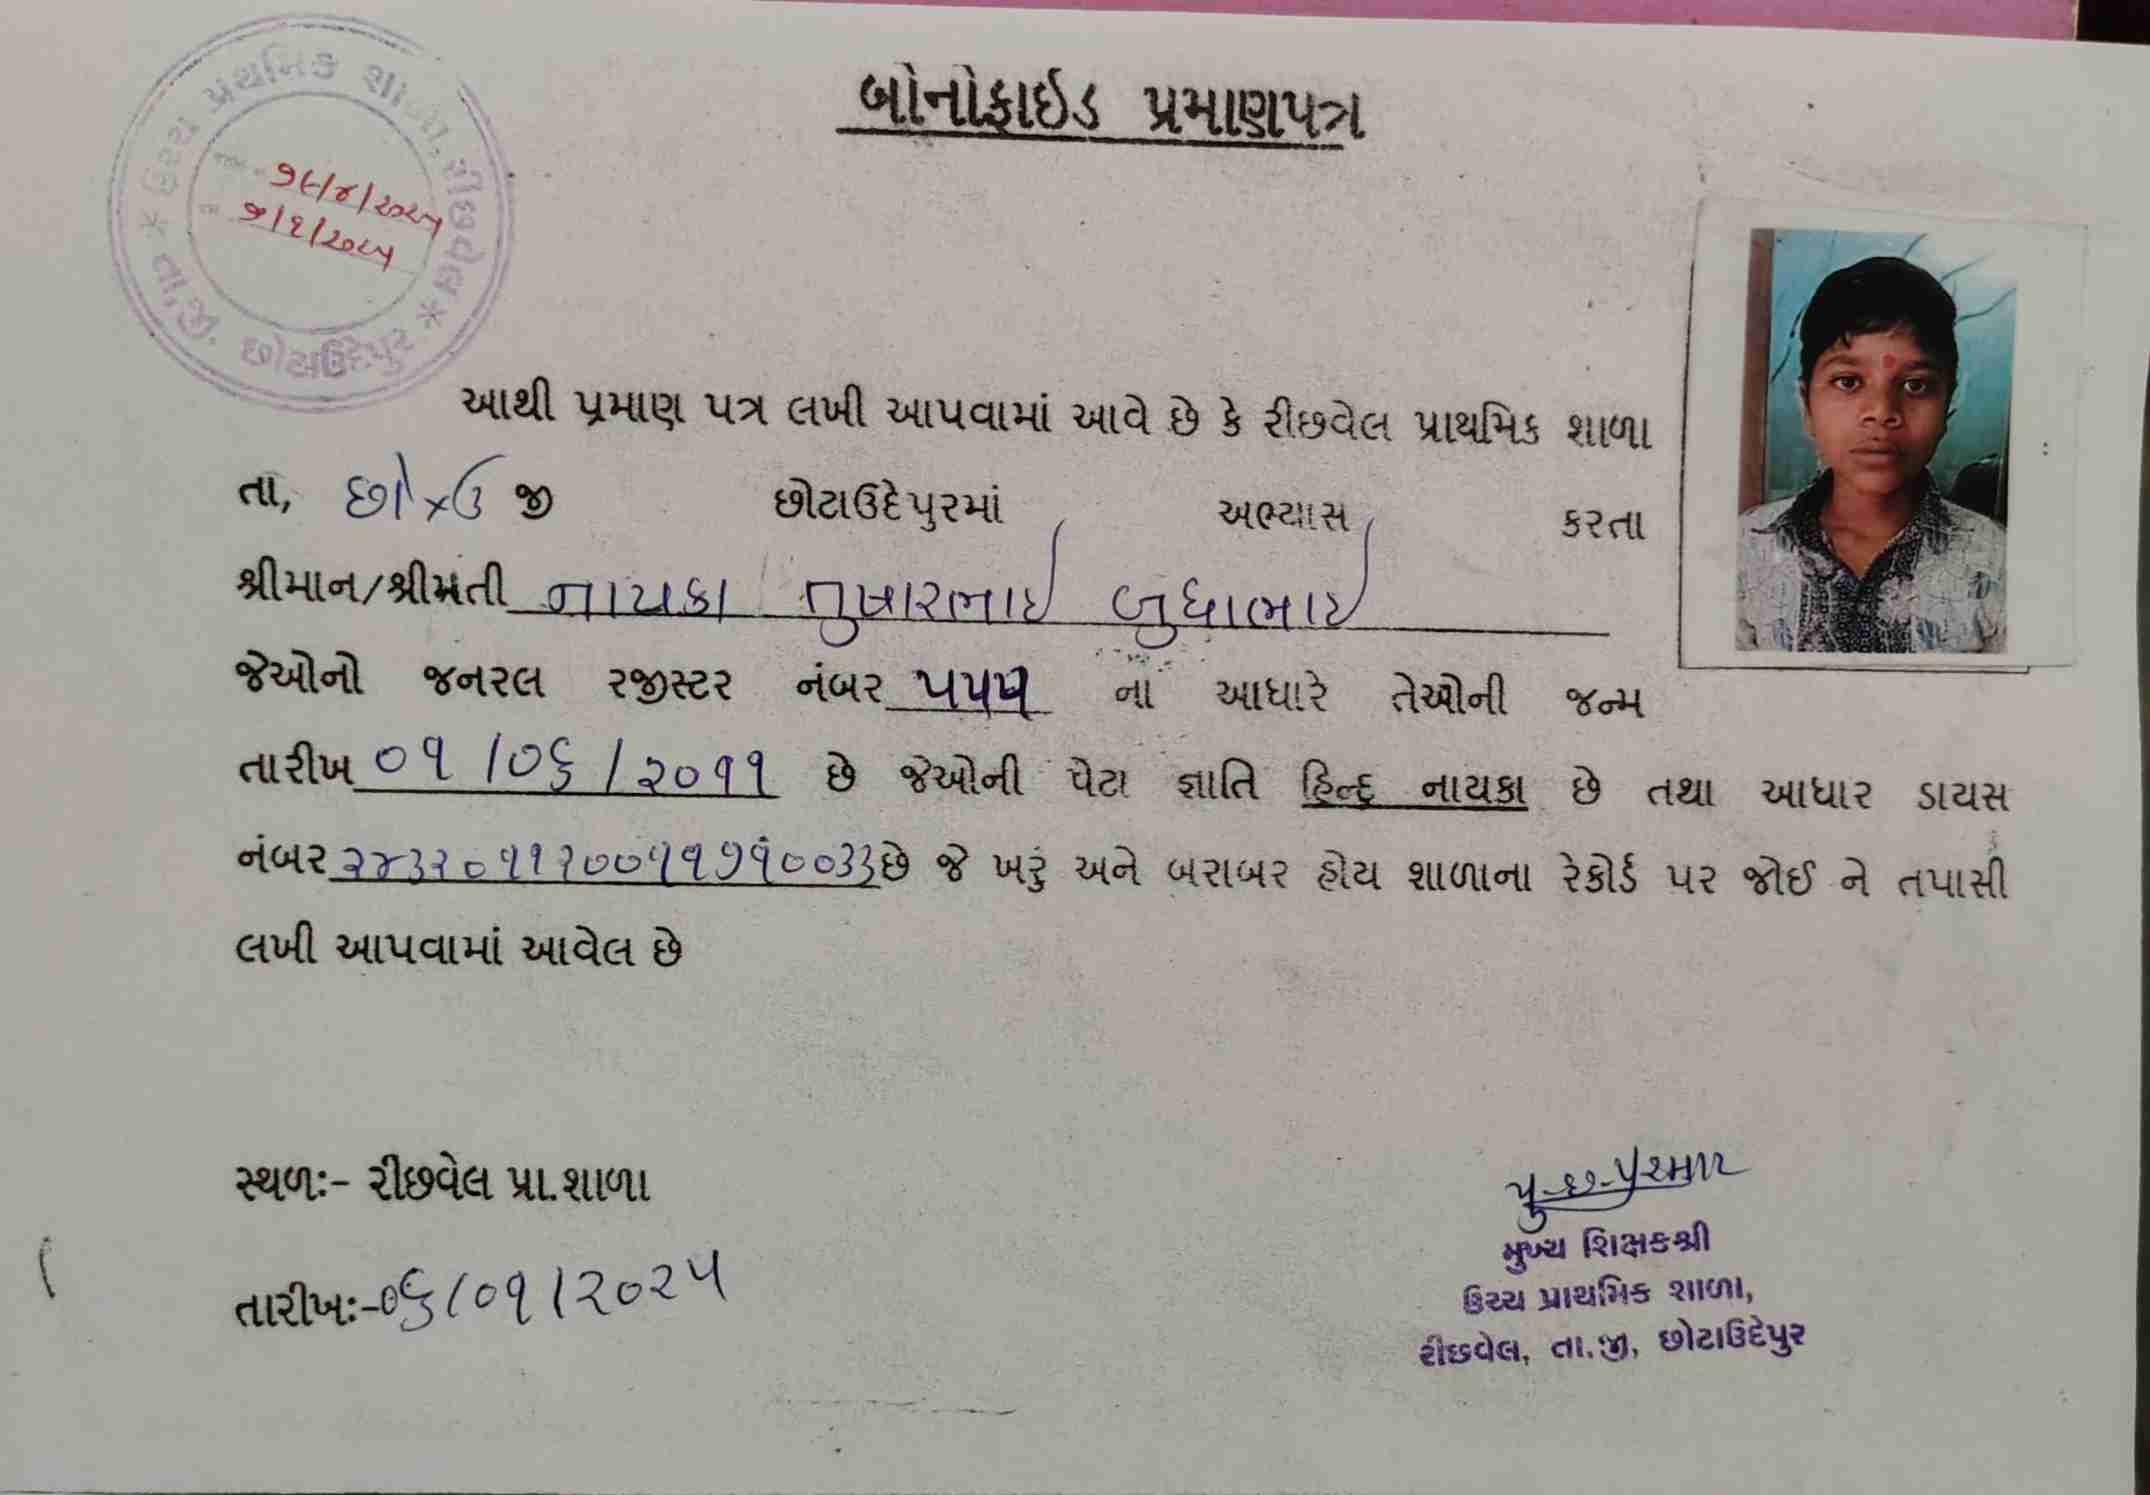 બોનોફાઇડ પ્રમાણપત્ર
ઉચ્ચ પ્રાથમિક શાળા, રીંછવેલ * તા,જી. છોટાઉદેપુર *
૧૯/૪/૨૦૨૫
૭/૧/૨૦૨૫
આથી પ્રમાણ પત્ર લખી આપવામાં આવે છે કે રીંછવેલ પ્રાથમિક શાળા
તા, છો×ઉ જી છોટાઉદેપુરમાં અભ્યાસ કરતા
શ્રીમાન/શ્રીમતી નાયકા તુષારભાઈ બુધાભાઈ
જેઓનો જનરલ રજીસ્ટર નંબર ૫૫૫ ના આધારે તેઓની જન્મ
તારીખ ૦૧/૦૬/૨૦૧૧ છે જેઓની પેટા જ્ઞાતિ હિન્દુ નાયકા છે તથા આધાર ડાયસ
નંબર છે જે ખરું અને બરાબર હોય શાળાના રેકોર્ડ પર જોઈ ને તપાસી
લખી આપવામાં આવેલ છે
સ્થળઃ- રીંછવેલ પ્રા.શાળા
તારીખઃ-૦૬/૦૧/૨૦૨૫
પુ.છ.પરમાર
મુખ્ય શિક્ષકશ્રી
ઉચ્ચ પ્રાથમિક શાળા,
રીંછવેલ, તા.જી, છોટાઉદેપુર